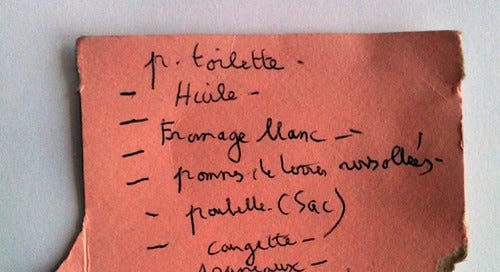 p. toilette -
- Huile -
- Fromage blanc -
- pommes de terres rissollées -
- poubelle (Sac)
- courgette -